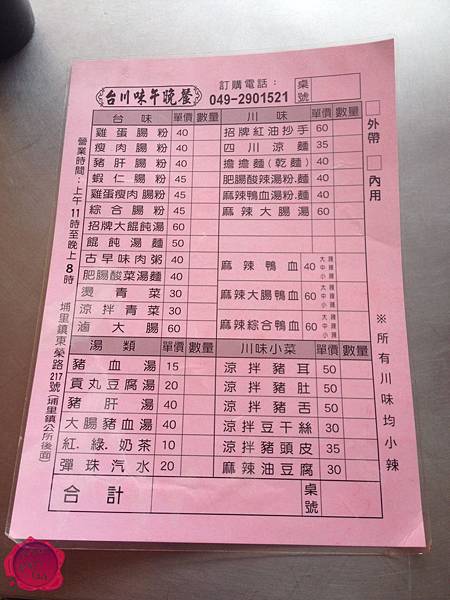 台川味午晚餐
訂購電話：
049-2901521
桌號
外帶
內用
台味 單價 數量 川味 單價 數量
雞蛋腸粉 40 招牌紅油抄手 60
瘦肉腸粉 40 四川涼麵 35
豬肝腸粉 40 擔擔麵(乾麵) 40
蝦仁腸粉 45 肥腸酸辣湯粉.麵 40
雞蛋瘦肉腸粉 45 麻辣鴨血湯粉.麵 40
綜合腸粉 45 麻辣大腸湯 60
招牌大餛飩湯 60
餛飩湯麵 50
古早味肉粥 40 麻辣鴨血 40 大辣 中辣 小辣
肥腸酸菜湯麵 40
燙青菜 30 麻辣大腸鴨血 60 大辣 中辣 小辣
涼拌青菜 30
滷大腸 60 麻辣綜合鴨血 60 大辣 中辣 小辣
湯類 單價 數量 川味小菜 單價 數量
豬血湯 15 涼拌豬耳 50
貢丸豆腐湯 20 涼拌豬肚 50
豬肝湯 40 涼拌豬舌 50
大腸豬血湯 40 涼拌豆干絲 30
紅.綠.奶茶 10 涼拌豬頭皮 35
彈珠汽水 20 麻辣油豆腐 30
合計 桌號
營業時間：上午11時至晚上8時
埔里鎮東榮路217號(埔里鎮公所後面)
※所有川味均小辣